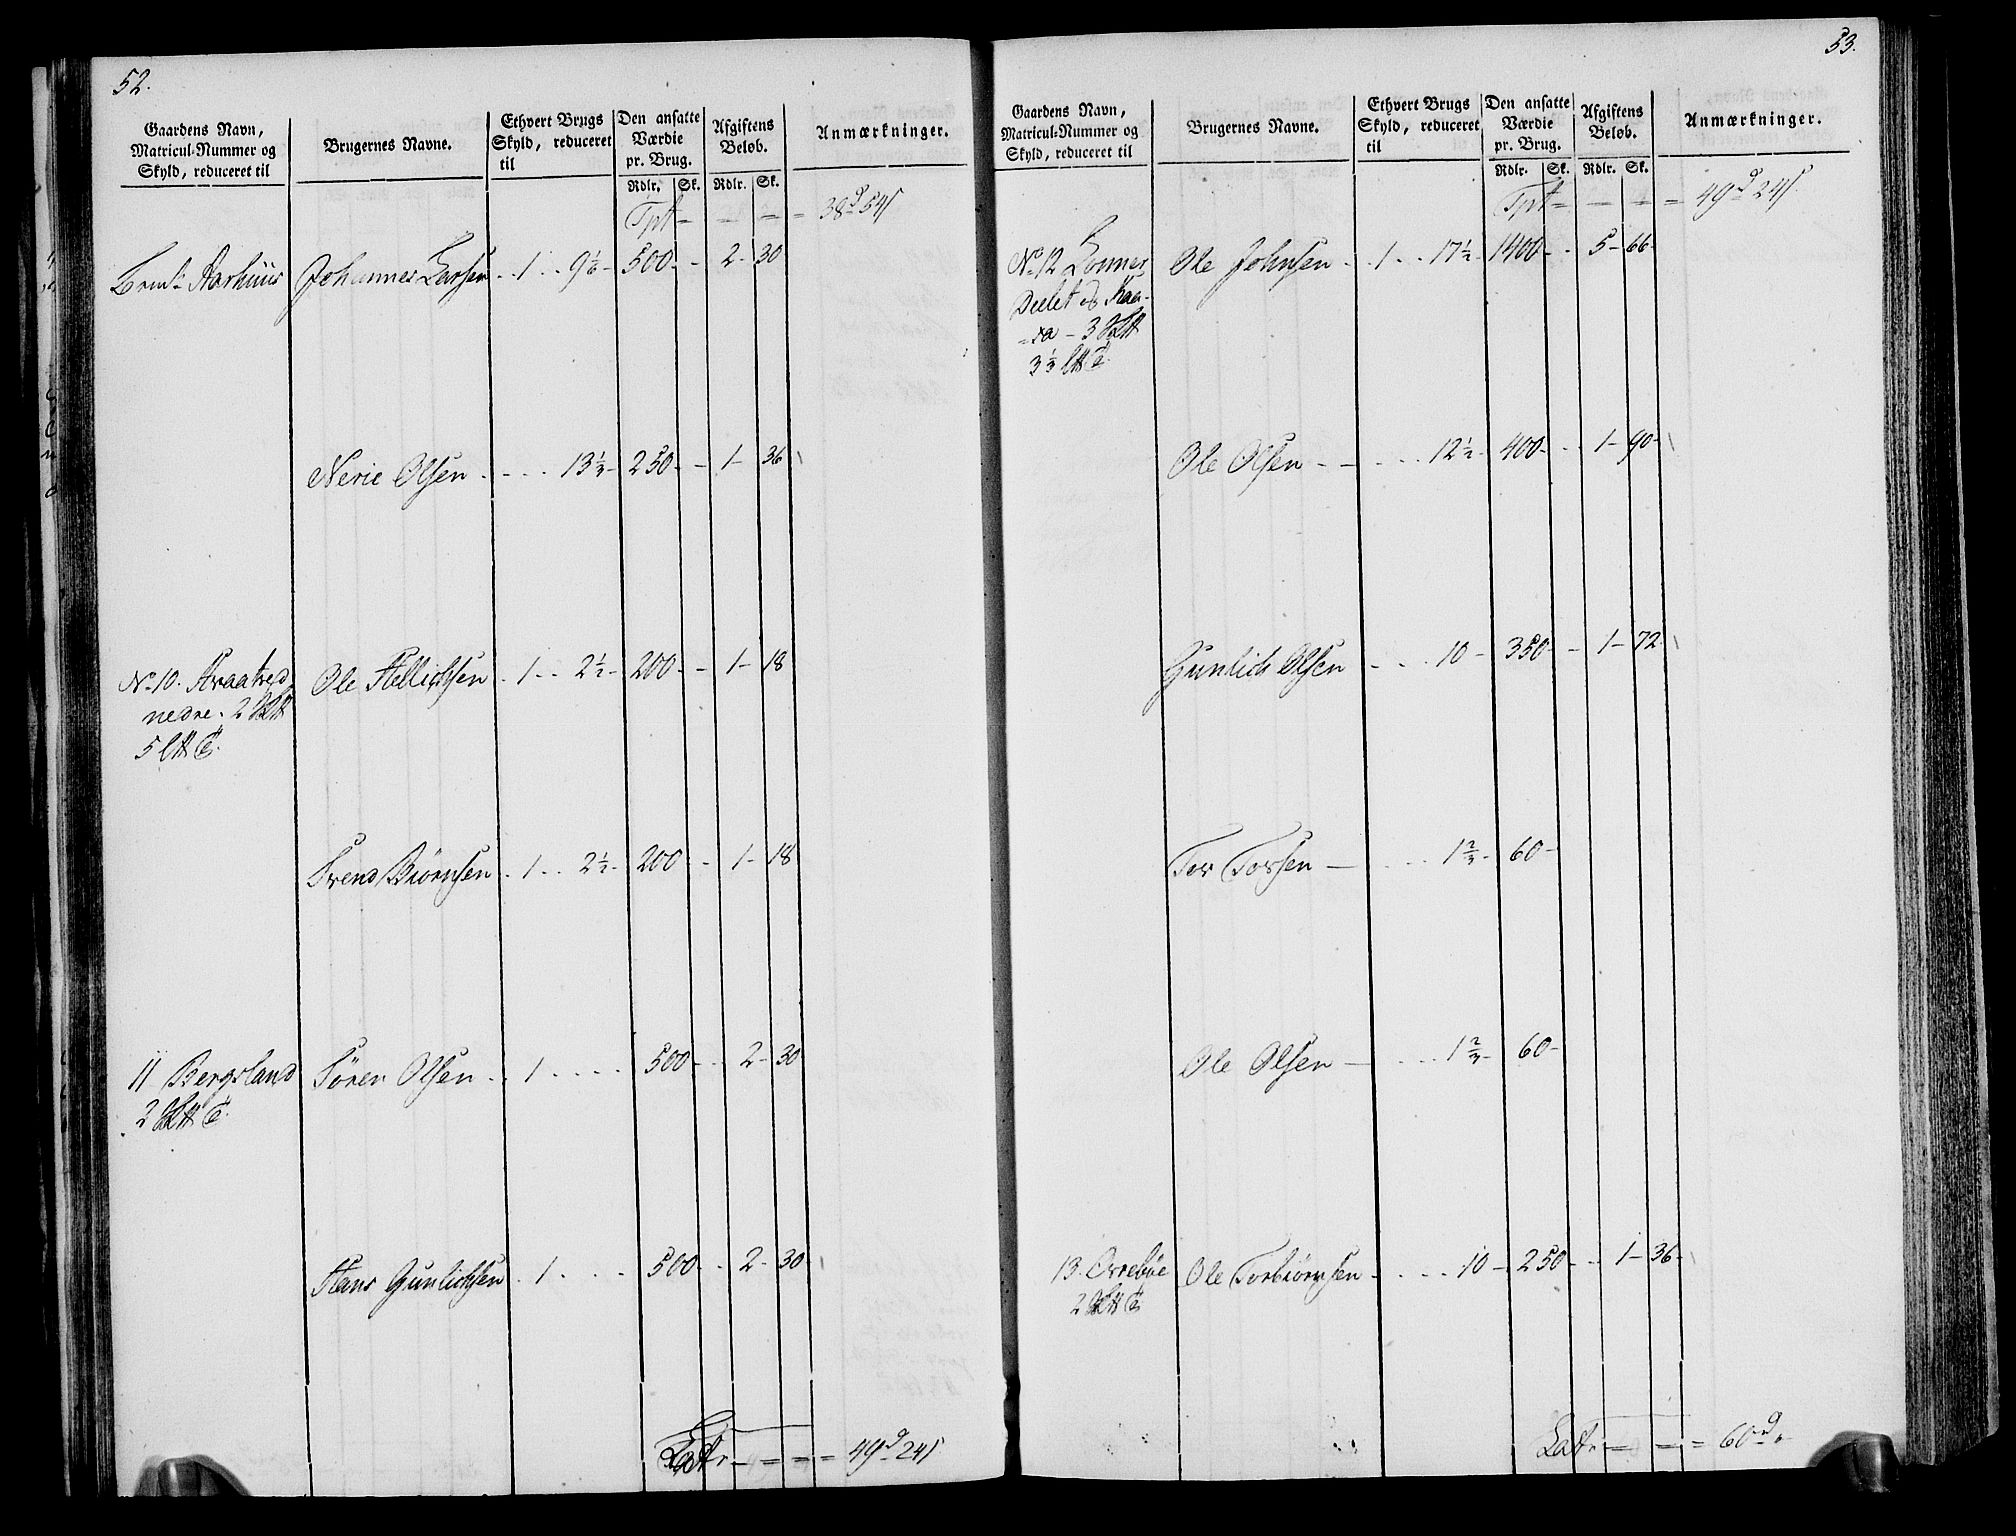 52.
Gaardens Navn, Matricul-Nummer og Skyld, reduceret til | Brugernes Navne. | Ethvert Brugs Skyld, reduceret til | Den ansatte Værdie pr. Brug. Rdlr. Sk. | Afgiftens Beløb. Rdlr. Sk. | Anmærkninger.
Tpt = = = = 38 d 54 s
Aarhuus Johannes Larsen . . 1 . . 9 1/6 - 500 - - 2 - 30
Nerie Olsen . - - - 13 1/3 - 250 - - 1 - 36
No 10. Svaatved Ole Kellichsen . 1 . . 2 1/2 - 200 - - 1 - 18
nedre. 2
5
Svend Biørnsen . 1 . . 2 1/2 - 200 - - 1 - 18
11 Bergsland Sören Olsen . . 1 . . . . 500 - - 2 - 30
2
Hans Gunlichsen . 1 . . . . 500 - - 2 - 30
Lat. - = = = 49 d 24 s
53.
Gaardens Navn, Matricul-Nummer og Skyld, reduceret til | Brugernes Navne. | Ethvert Brugs Skyld, reduceret til | Den ansatte Værdie pr. Brug. Rdlr. Sk. | Afgiftens Beløb. Rdlr. Sk. | Anmærkninger.
Tpt = - - = 49 d 24 s
No 12 Lonner Ole Johnsen . . 1 . . 17 1/2 - 1400 - - 5 - 66
Deelet
- 3
3 1/3
Ole Olsen - - . . . 12 1/2 - 400 - - 1 - 90 -
Gunlich Olsen - . . 10 - 350 - - 1 - 72
Tor Torsen - . . . 1 2/3 - 60 -
Ole Olsen - . . . 1 2/3 - 60 -
13. Orrebøe Ole Torbiørnsen . . . . 10 - 250 - - 1 - 36 -
2
Lat. = - = 60 d